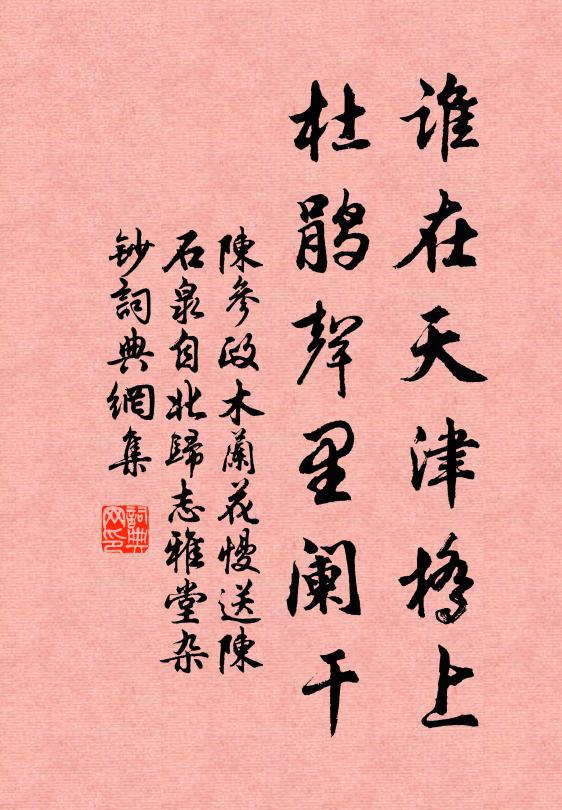 谁在天津橋上
杜鹃聲里阑干
陳參政木蘭花慢送陳
石泉自北歸志雅堂杂
鈔詞典網集
詞典网印